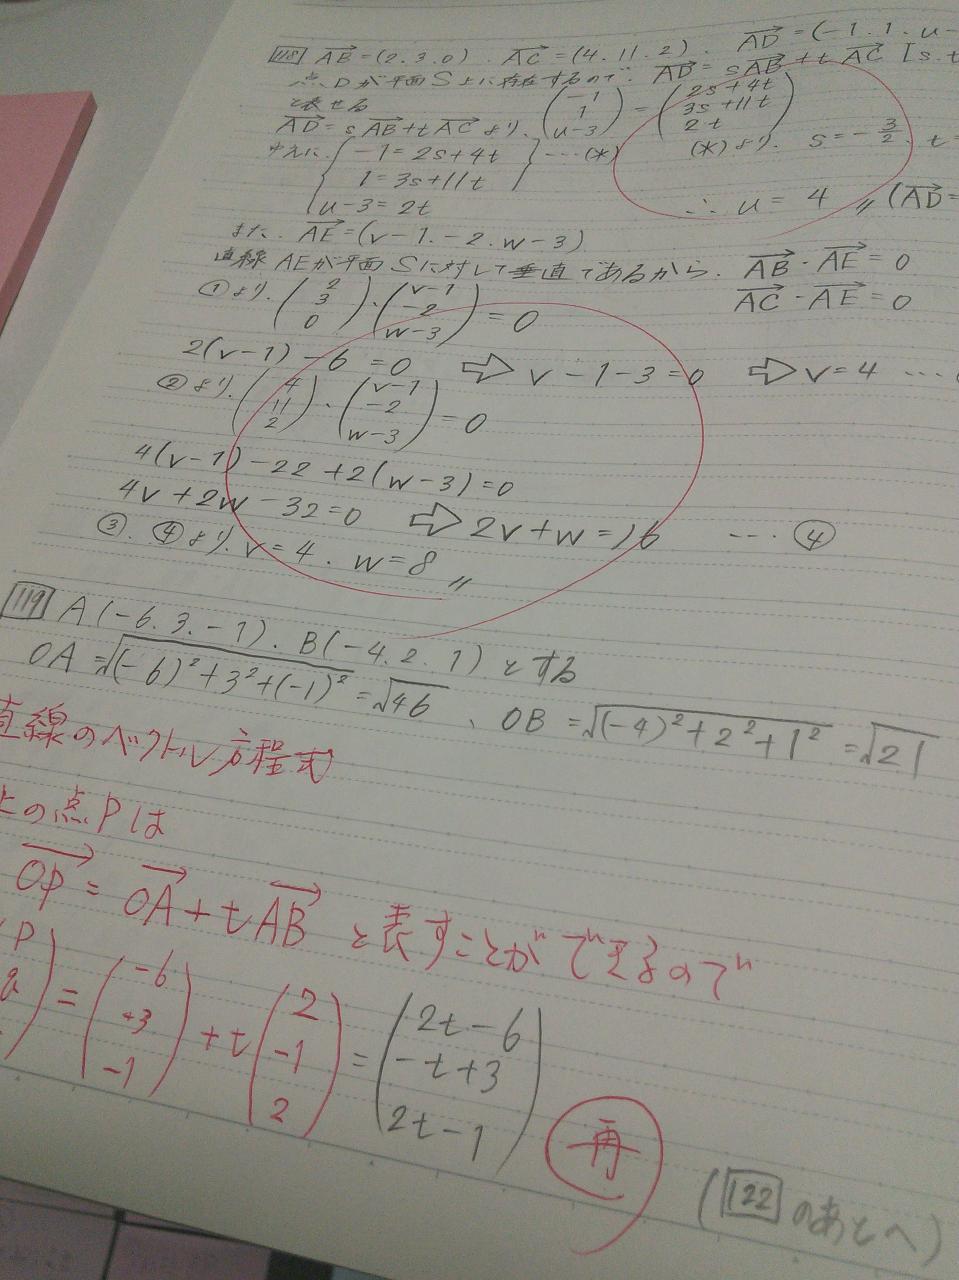 118 AB=(2.3.0). AC=(4.11.2). AD=(-1.1.u-
点Dが平面S上に存在するので. AD=sAB+tAC [s.t
と表せる
AD=sAB+tACより. (-1 1 u-3) = (2s+4t 3s+11t 2t)
ゆえに. { -1=2s+4t } ---(*) (*)より. s=-3/2. t=
1=3s+11t
u-3=2t ∴ u=4 〃 (AD=
また. AE=(v-1.-2.w-3)
直線AEが平面Sに対して垂直であるから. AB・AE=0
AC・AE=0
①より. (2 3 0)・(v-1 -2 w-3)=0
2(v-1)-6=0 ⇨ v-1-3=0 ⇨ v=4 ---
②より. (4 11 2)・(v-1 -2 w-3)=0
4(v-1)-22+2(w-3)=0
4v+2w-32=0 ⇨ 2v+w=16 --- ④
③. ④より. v=4. w=8 〃
119 A(-6.3.-1). B(-4.2.1)とする
OA=√(-6)²+3²+(-1)²=√46 、OB=√(-4)²+2²+1²=√21
直線のベクトル方程式
上の点Pは
OP=OA+tAB と表すことができるので
(P a = (-6 +3 -1)+t(2 -1 2)=(2t-6 -t+3 2t-1)
再
(122のあとへ)